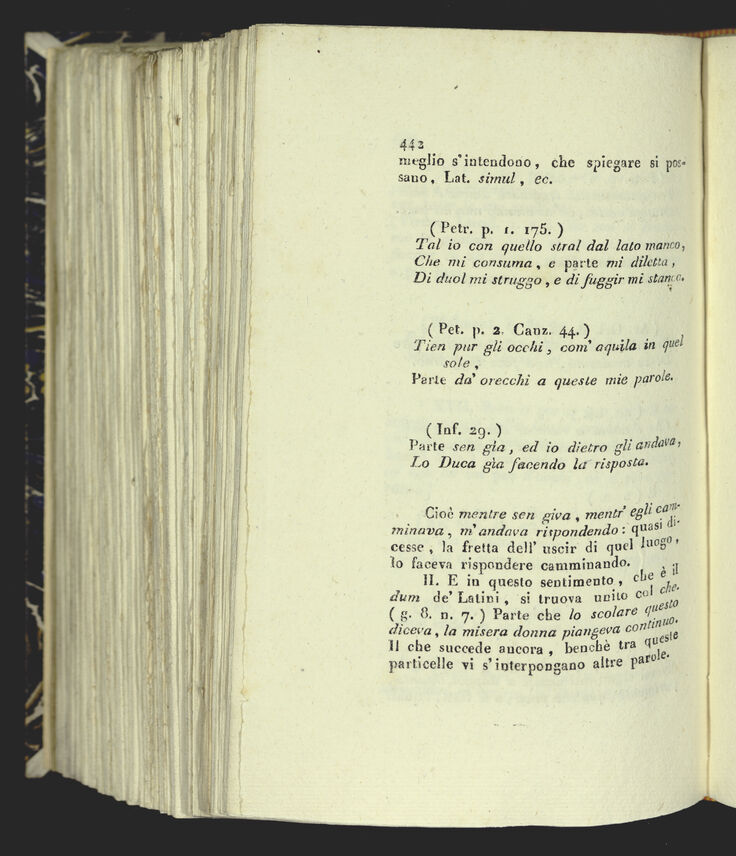 442
meglio s'intendono, che spiegare si pos-
sano, Lat. simul, ec.
(Petr. p. 1. 175.)
Tal io con quello stral dal lato manco,
Che mi consuma, e parte mi diletta,
Di duol mi struggo, e di fuggir mi stanco.
(Pet. p. 2. Canz. 44.)
Tien pur gli occhi, com' aquila in quel
sole,
Parte da' orecchi a queste mie parole.
(Inf. 29.)
Parte sen gìa, ed io dietro gli andava,
Lo Duca già facendo la risposta.
Cioè mentre sen giva, mentr' egli cam-
minava, m' andava rispondendo: quasi di-
cesse, la fretta dell' uscir di quel luogo,
lo faceva rispondere camminando.
II. E in questo sentimento, che è il
dum de' Latini, si truova unito col che.
(g. 8. n. 7.) Parte che lo scolare questo
diceva, la misera donna piangeva continuo.
Il che succede ancora, benchè tra queste
particelle vi s'interpongano altre parole.